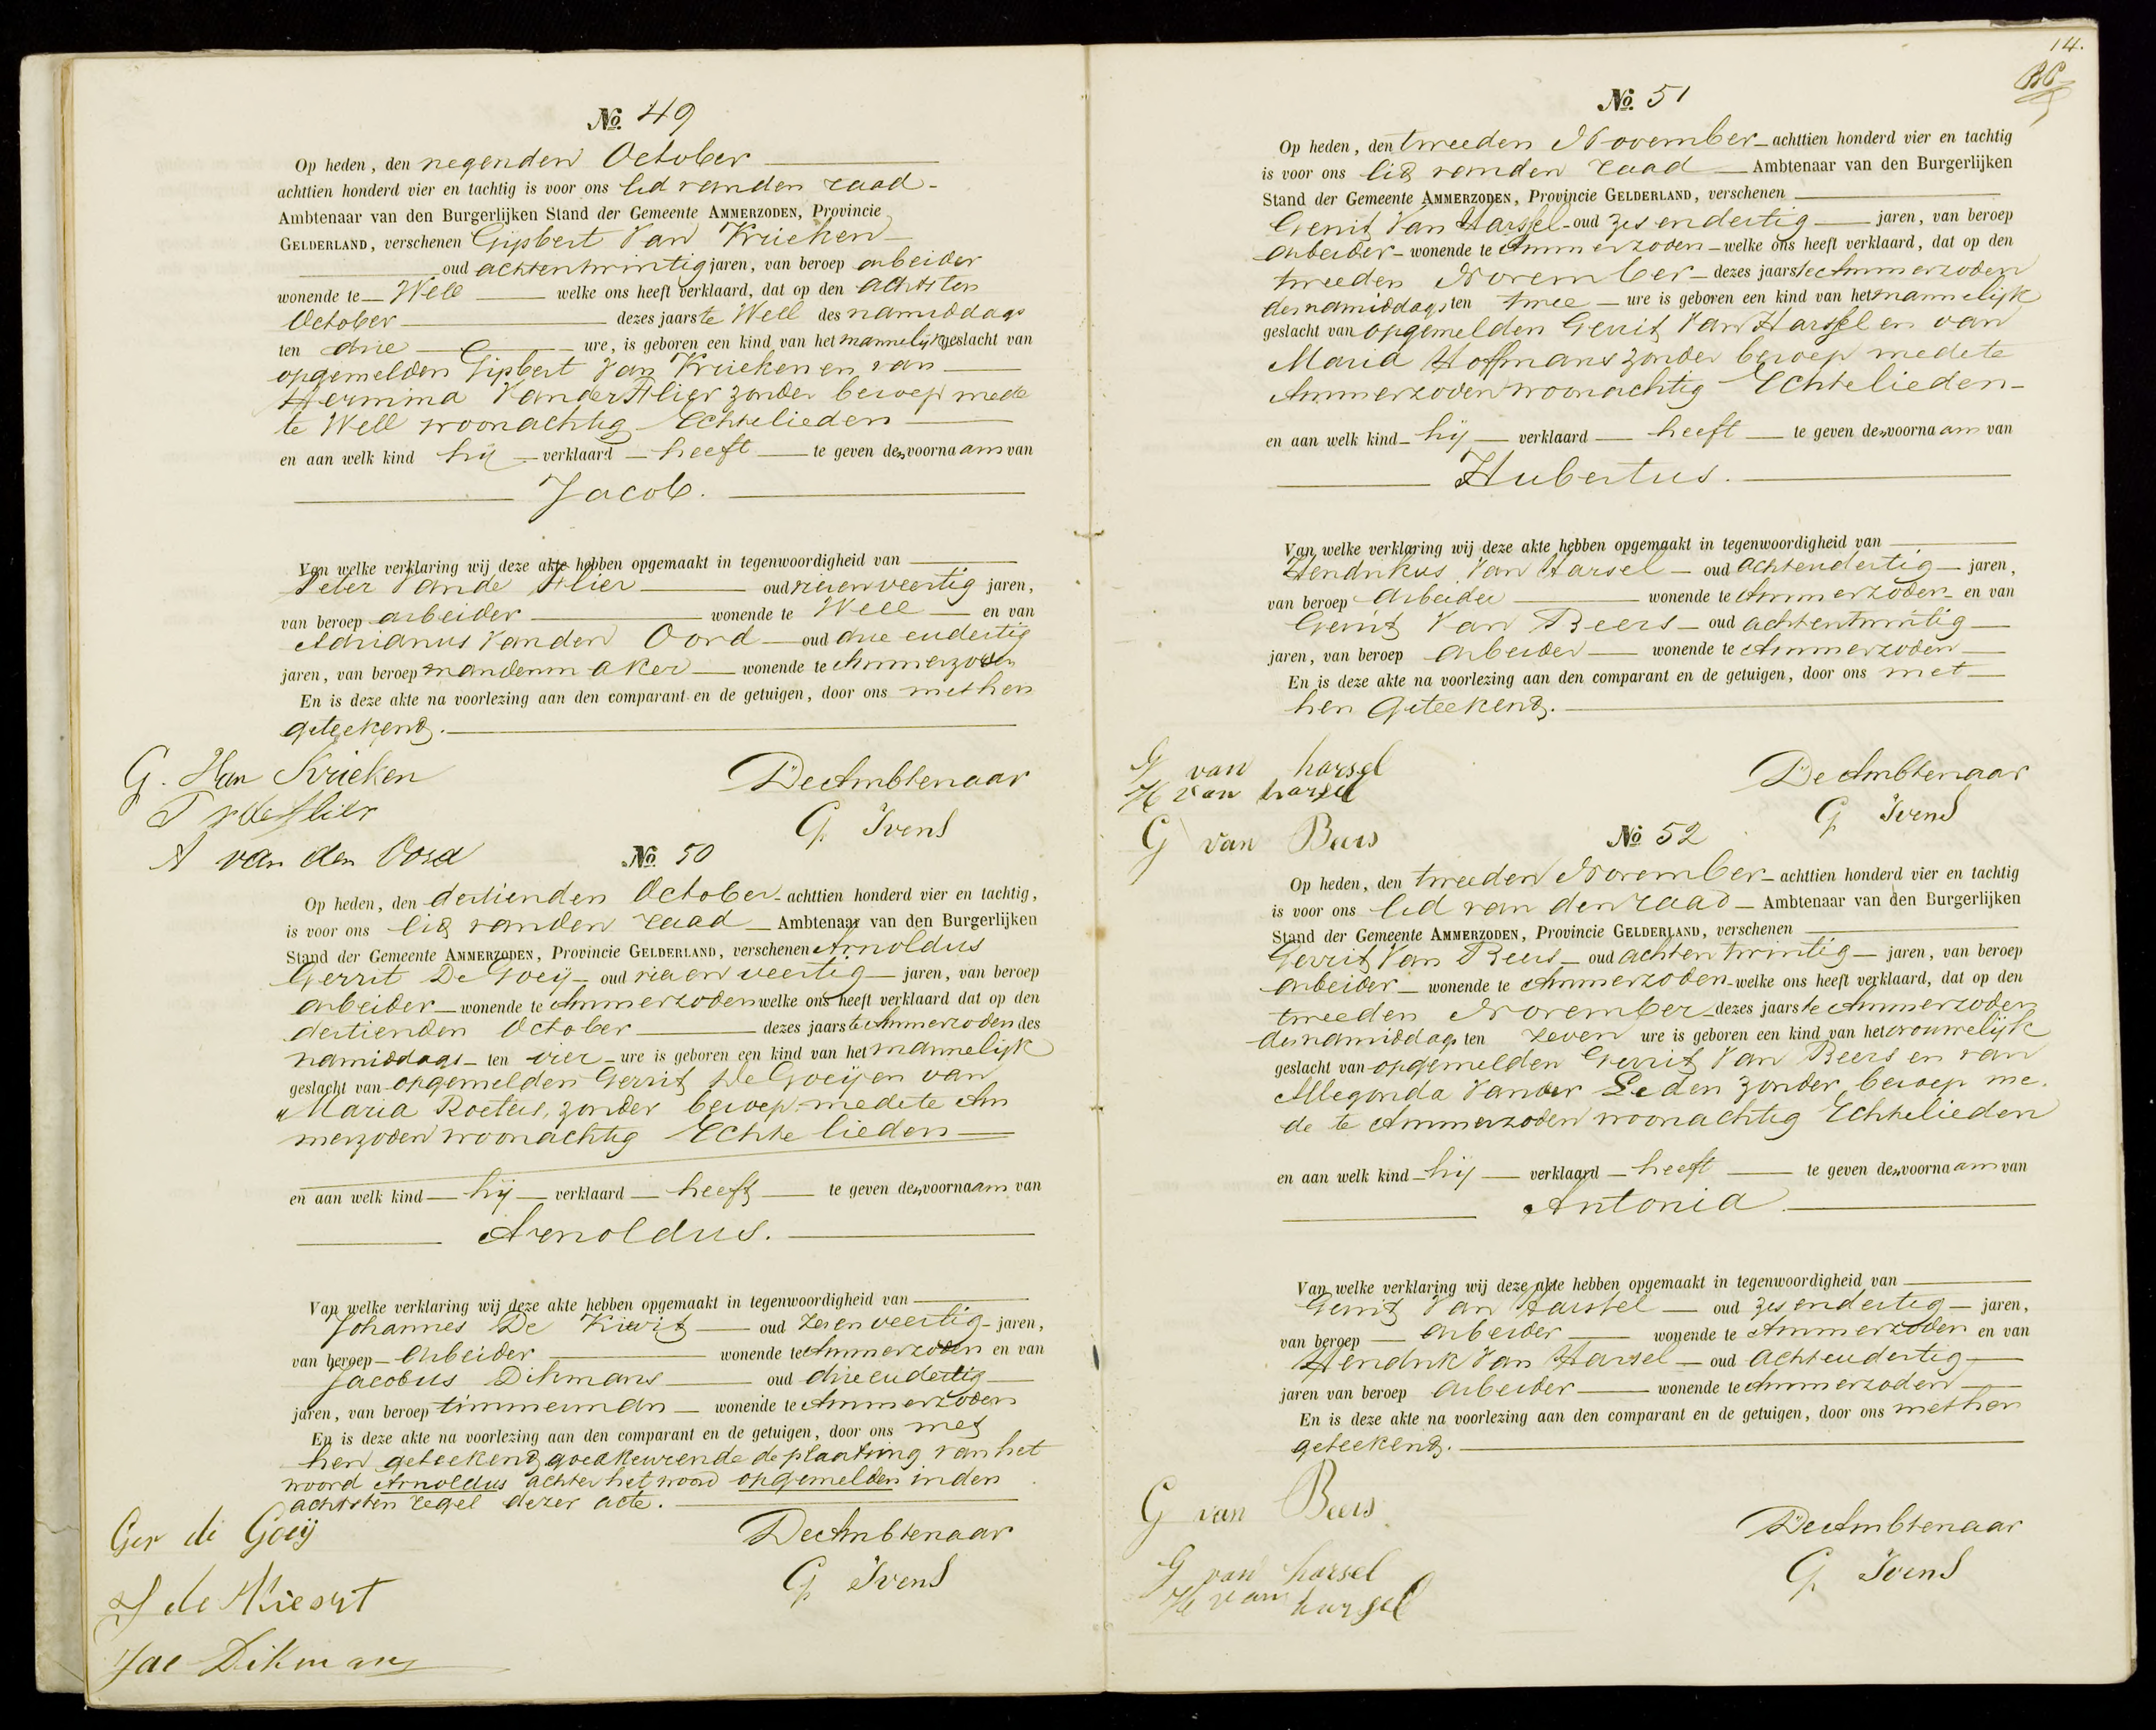 No. 49
Op heden, den negenden October
achttien honderd vier en tachtig is voor ons lid van den raad
Ambtenaar van den Burgerlijken Stand der Gemeente AMMERZODEN, Provincie
GELDERLAND, verschenen Gijsbert Van Krieken
oud achtentwintig jaren, van beroep arbeider
wonende te Well welke ons heeft verklaard, dat op den achtsten
October dezes jaars te Well des namiddags
ten drie ure, is geboren een kind van het mannelijk geslacht van
opgemelden Gijsbert Van Krieken en van
Hermina Van der Flier zonder beroep mede
te Well woonachtig Echtelieden
en aan welk kind hij verklaard heeft te geven den voornaam van
Jacob.
Van welke verklaring wij deze akte hebben opgemaakt in tegenwoordigheid van
Peter Van de Flier oud zevenveertig jaren,
van beroep arbeider wonende te Well en van
Adrianus Van den Oord oud drie endertig
jaren, van beroep mandenmaker wonende te Ammerzoden
En is deze akte na voorlezing aan den comparant en de getuigen, door ons met hen
geteekend.
G. Van Krieken
De Ambtenaar
P v de flier
G Ivens
A van den Oord
No. 50
Op heden, den dertienden October achttien honderd vier en tachtig,
is voor ons lid van den raad Ambtenaar van den Burgerlijken
Stand der Gemeente AMMERZODEN, Provincie GELDERLAND, verschenen Arnoldus
Gerrit De Goeij oud vier en veertig jaren, van beroep
arbeider wonende te Ammerzoden welke ons heeft verklaard dat op den
dertienden October dezes jaars te Ammerzoden des
namiddags ten vier ure is geboren een kind van het mannelijk
geslacht van opgemelden Gerrit De Goeij en van
Maria Roeters, zonder beroep mede te Am
merzoden woonachtig Echte lieden
en aan welk kind hij verklaard heeft te geven den voornaam van
Arnoldus.
Van welke verklaring wij deze akte hebben opgemaakt in tegenwoordigheid van
Johannes De Kievit oud zevenveertig jaren,
van beroep arbeider wonende te Ammerzoden en van
Jacobus Dikmans oud drieendertig
jaren, van beroep timmerman wonende te Ammerzoden
En is deze akte na voorlezing aan den comparant en de getuigen, door ons met
hen geteekend goedkeurende de plaatsing van het
woord Arnoldus achter het woord opgemelden in den
achtsten regel dezer acte.
Ger de Goeij
De Ambtenaar
G Ivens
J de Kievit
Jac Dikmans
14.
No. 51
Op heden, den tweeden November achttien honderd vier en tachtig
is voor ons lid van den raad Ambtenaar van den Burgerlijken
Stand der Gemeente AMMERZODEN, Provincie GELDERLAND, verschenen
Gerrit Van Harssel oud zes endertig jaren, van beroep
arbeider wonende te Ammerzoden welke ons heeft verklaard, dat op den
tweeden November dezes jaars te Ammerzoden
des namiddags ten twee ure is geboren een kind van het mannelijk
geslacht van opgemelden Gerrit Van Harssel en van
Maria Hoffmans zonder beroep mede te
Ammerzoden woonachtig Echtelieden
en aan welk kind hij verklaard heeft te geven den voornaam van
Hubertus.
Van welke verklaring wij deze akte hebben opgemaakt in tegenwoordigheid van
Hendrikus Van Harsel oud achtendertig jaren,
van beroep Arbeider wonende te Ammerzoden en van
Gerrit Van Beers oud achtentwintig
jaren, van beroep arbeider wonende te Ammerzoden
En is deze akte na voorlezing aan den comparant en de getuigen, door ons met
hen geteekend.
G van harsel
H van harsel
De Ambtenaar
G Ivens
G van Beers
No. 52
Op heden, den tweeden November achttien honderd vier en tachtig
is voor ons lid van den raad Ambtenaar van den Burgerlijken
Stand der Gemeente AMMERZODEN, Provincie GELDERLAND, verschenen
Gerrit Van Beers oud achtentwintig jaren, van beroep
arbeider wonende te Ammerzoden welke ons heeft verklaard, dat op den
tweeden November dezes jaars te Ammerzoden
des namiddags ten zeven ure is geboren een kind van het vrouwelijk
geslacht van opgemelden Gerrit Van Beers en van
Allegonda Van der Leden zonder beroep me
de te Ammerzoden woonachtig Echtelieden
en aan welk kind hij verklaard heeft te geven den voornaam van
Antonia.
Van welke verklaring wij deze akte hebben opgemaakt in tegenwoordigheid van
Gerrit Van Harssel oud zes endertig jaren,
van beroep arbeider wonende te Ammerzoden en van
Hendrik Van Harsel oud achtendertig
jaren van beroep arbeider wonende te Ammerzoden
En is deze akte na voorlezing aan den comparant en de getuigen, door ons met hen
geteekend.
G van Beers
De Ambtenaar
G van harsel
H van harsel
G Ivens